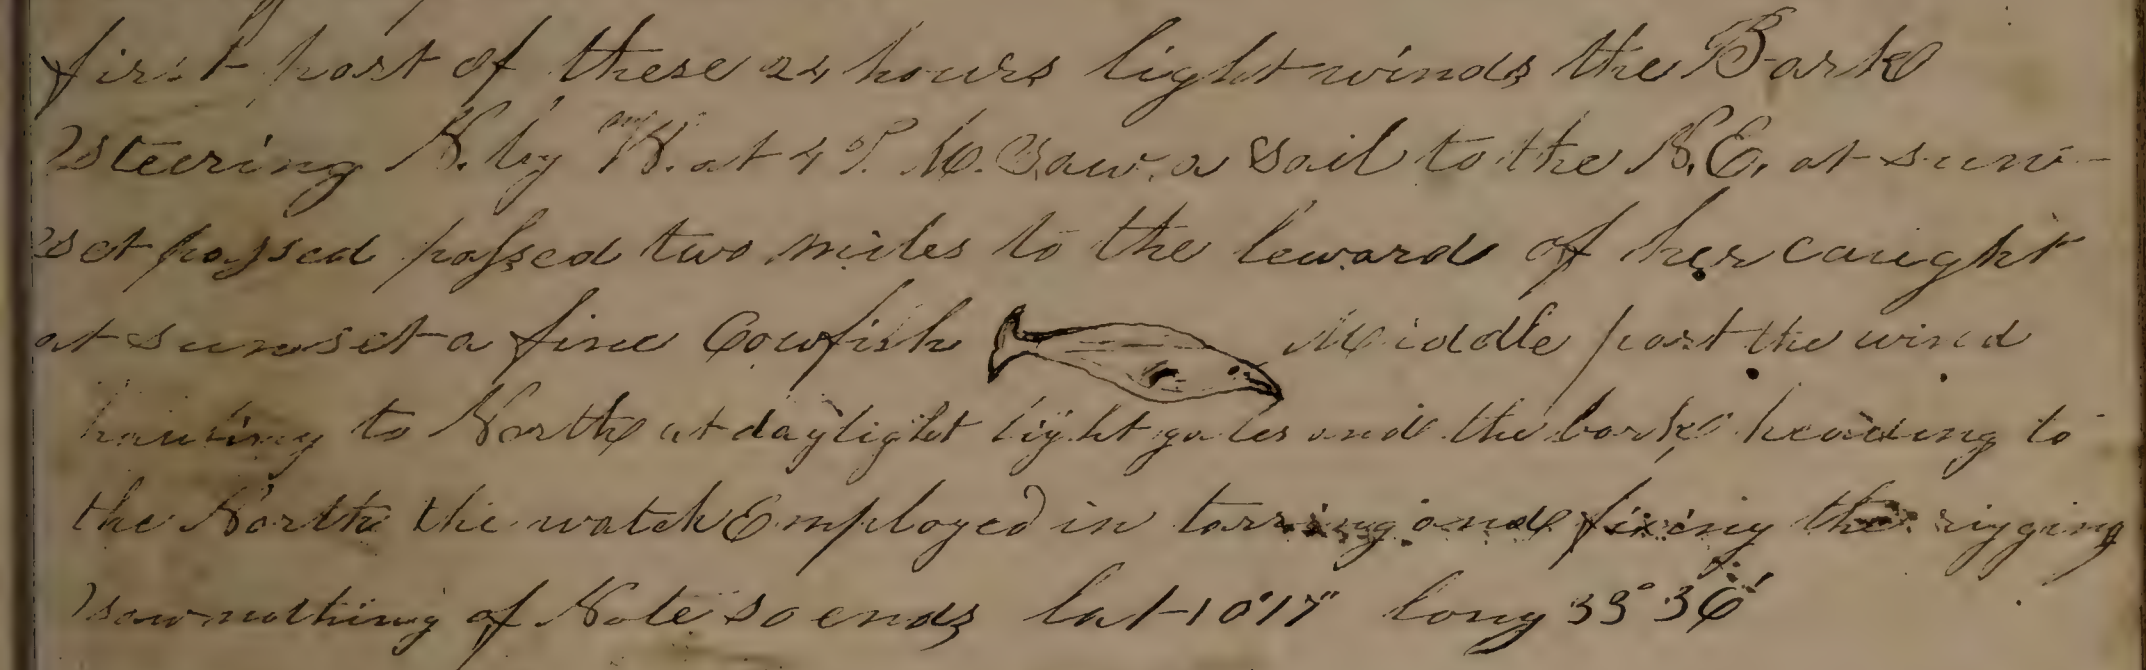 first part of these 24 hours light winds the Bark
Steering N. by W. at 4 P. M. Saw a Sail to the N.E. at sun-
set passed passed two miles to the leward of her caught
at sunset a fine Cowfish Middle part the wind
hauling to North at daylight light gales and the bark heading to
the North the watch Employed in tarring and fixing the rigging
saw nothing of Note so ends lat 10°17" long 33° 36'